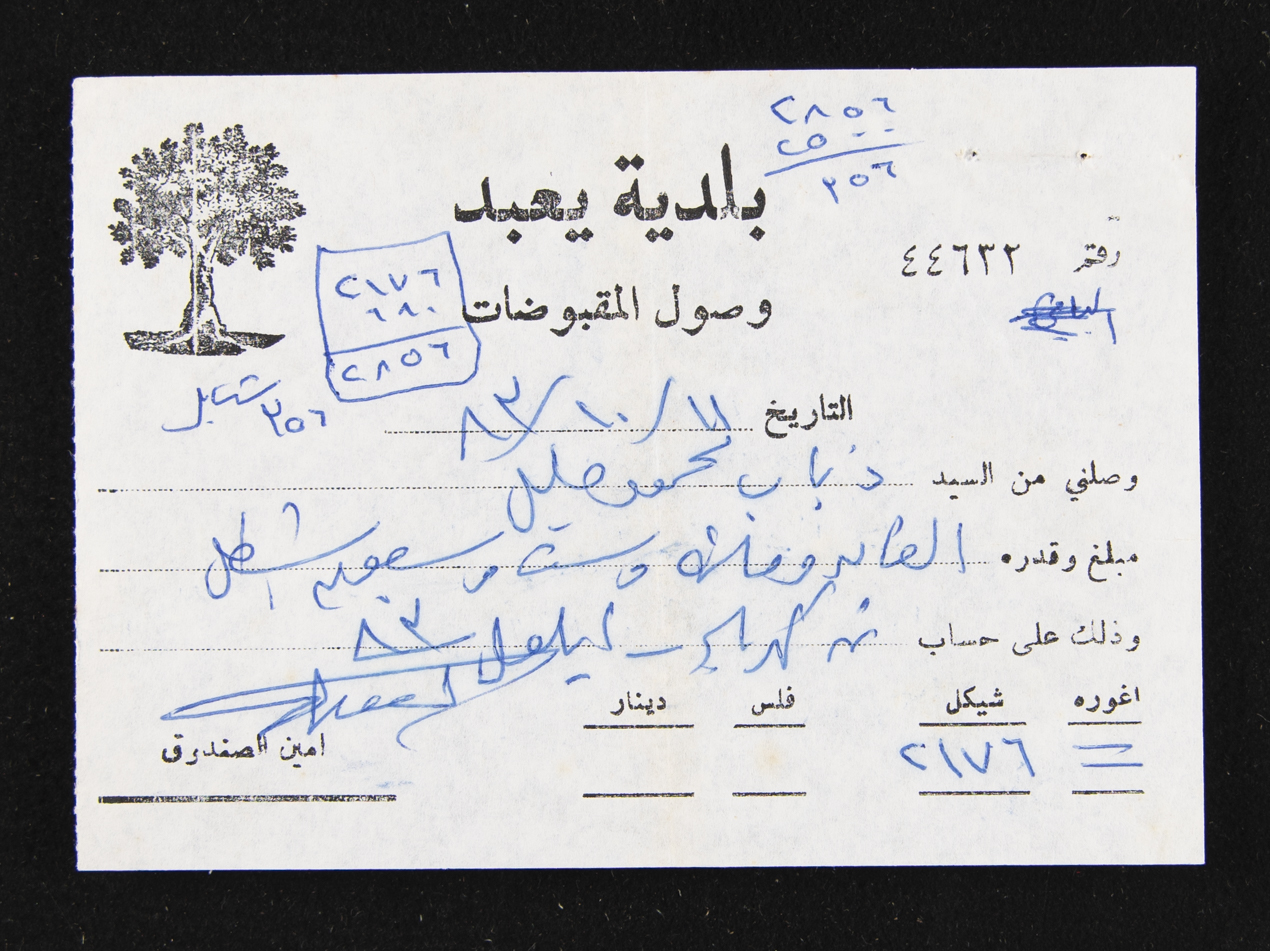 ٢٨٥٦
٢٥٠٠
٣٥٦
بلدية يعبد
رقم ٤٤٦٣٢
وصول المقبوضات
٢١٧٦
٦٨٠
٢٨٥٦
٣٥٦
التاريخ ١١/١٠/٨٣
وصلني من السيد ذياب محمود خليل
مبلغ وقدره الفان ومائة وست وسبعون شيكل
وذلك على حساب ثمن كهرباء - ايلول ٨٣
اغوره شيكل فلس دينار
= ٢١٧٦
امين الصندوق